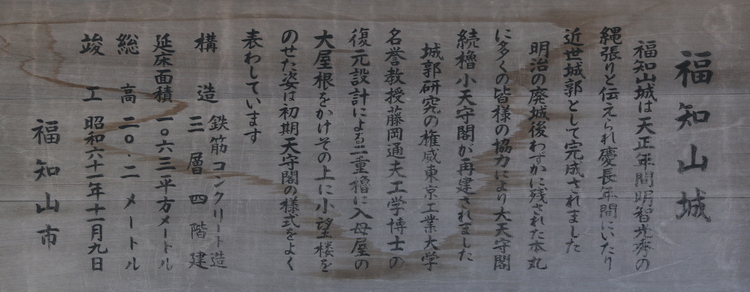 福知山城
福知山城は天正年間明智光秀の
縄張りと伝えられ慶長年間にいたり
近世城郭として完成されました
明治の廃城後わずかに残された本丸
に多くの皆様の協力により大天守閣
続櫓小天守閣が再建されました
城郭研究の権威東京工業大学
名誉教授藤岡通夫工学博士の
復元設計による二重櫓に入母屋の
大屋根をかけその上に小望楼を
のせた姿は初期天守閣の様式をよく
表わしています
構造 鉄筋コンクリート造
三層四階建
延床面積 一〇六三平方メートル
総高 二〇・二メートル
竣工 昭和六十一年十一月九日
福知山市